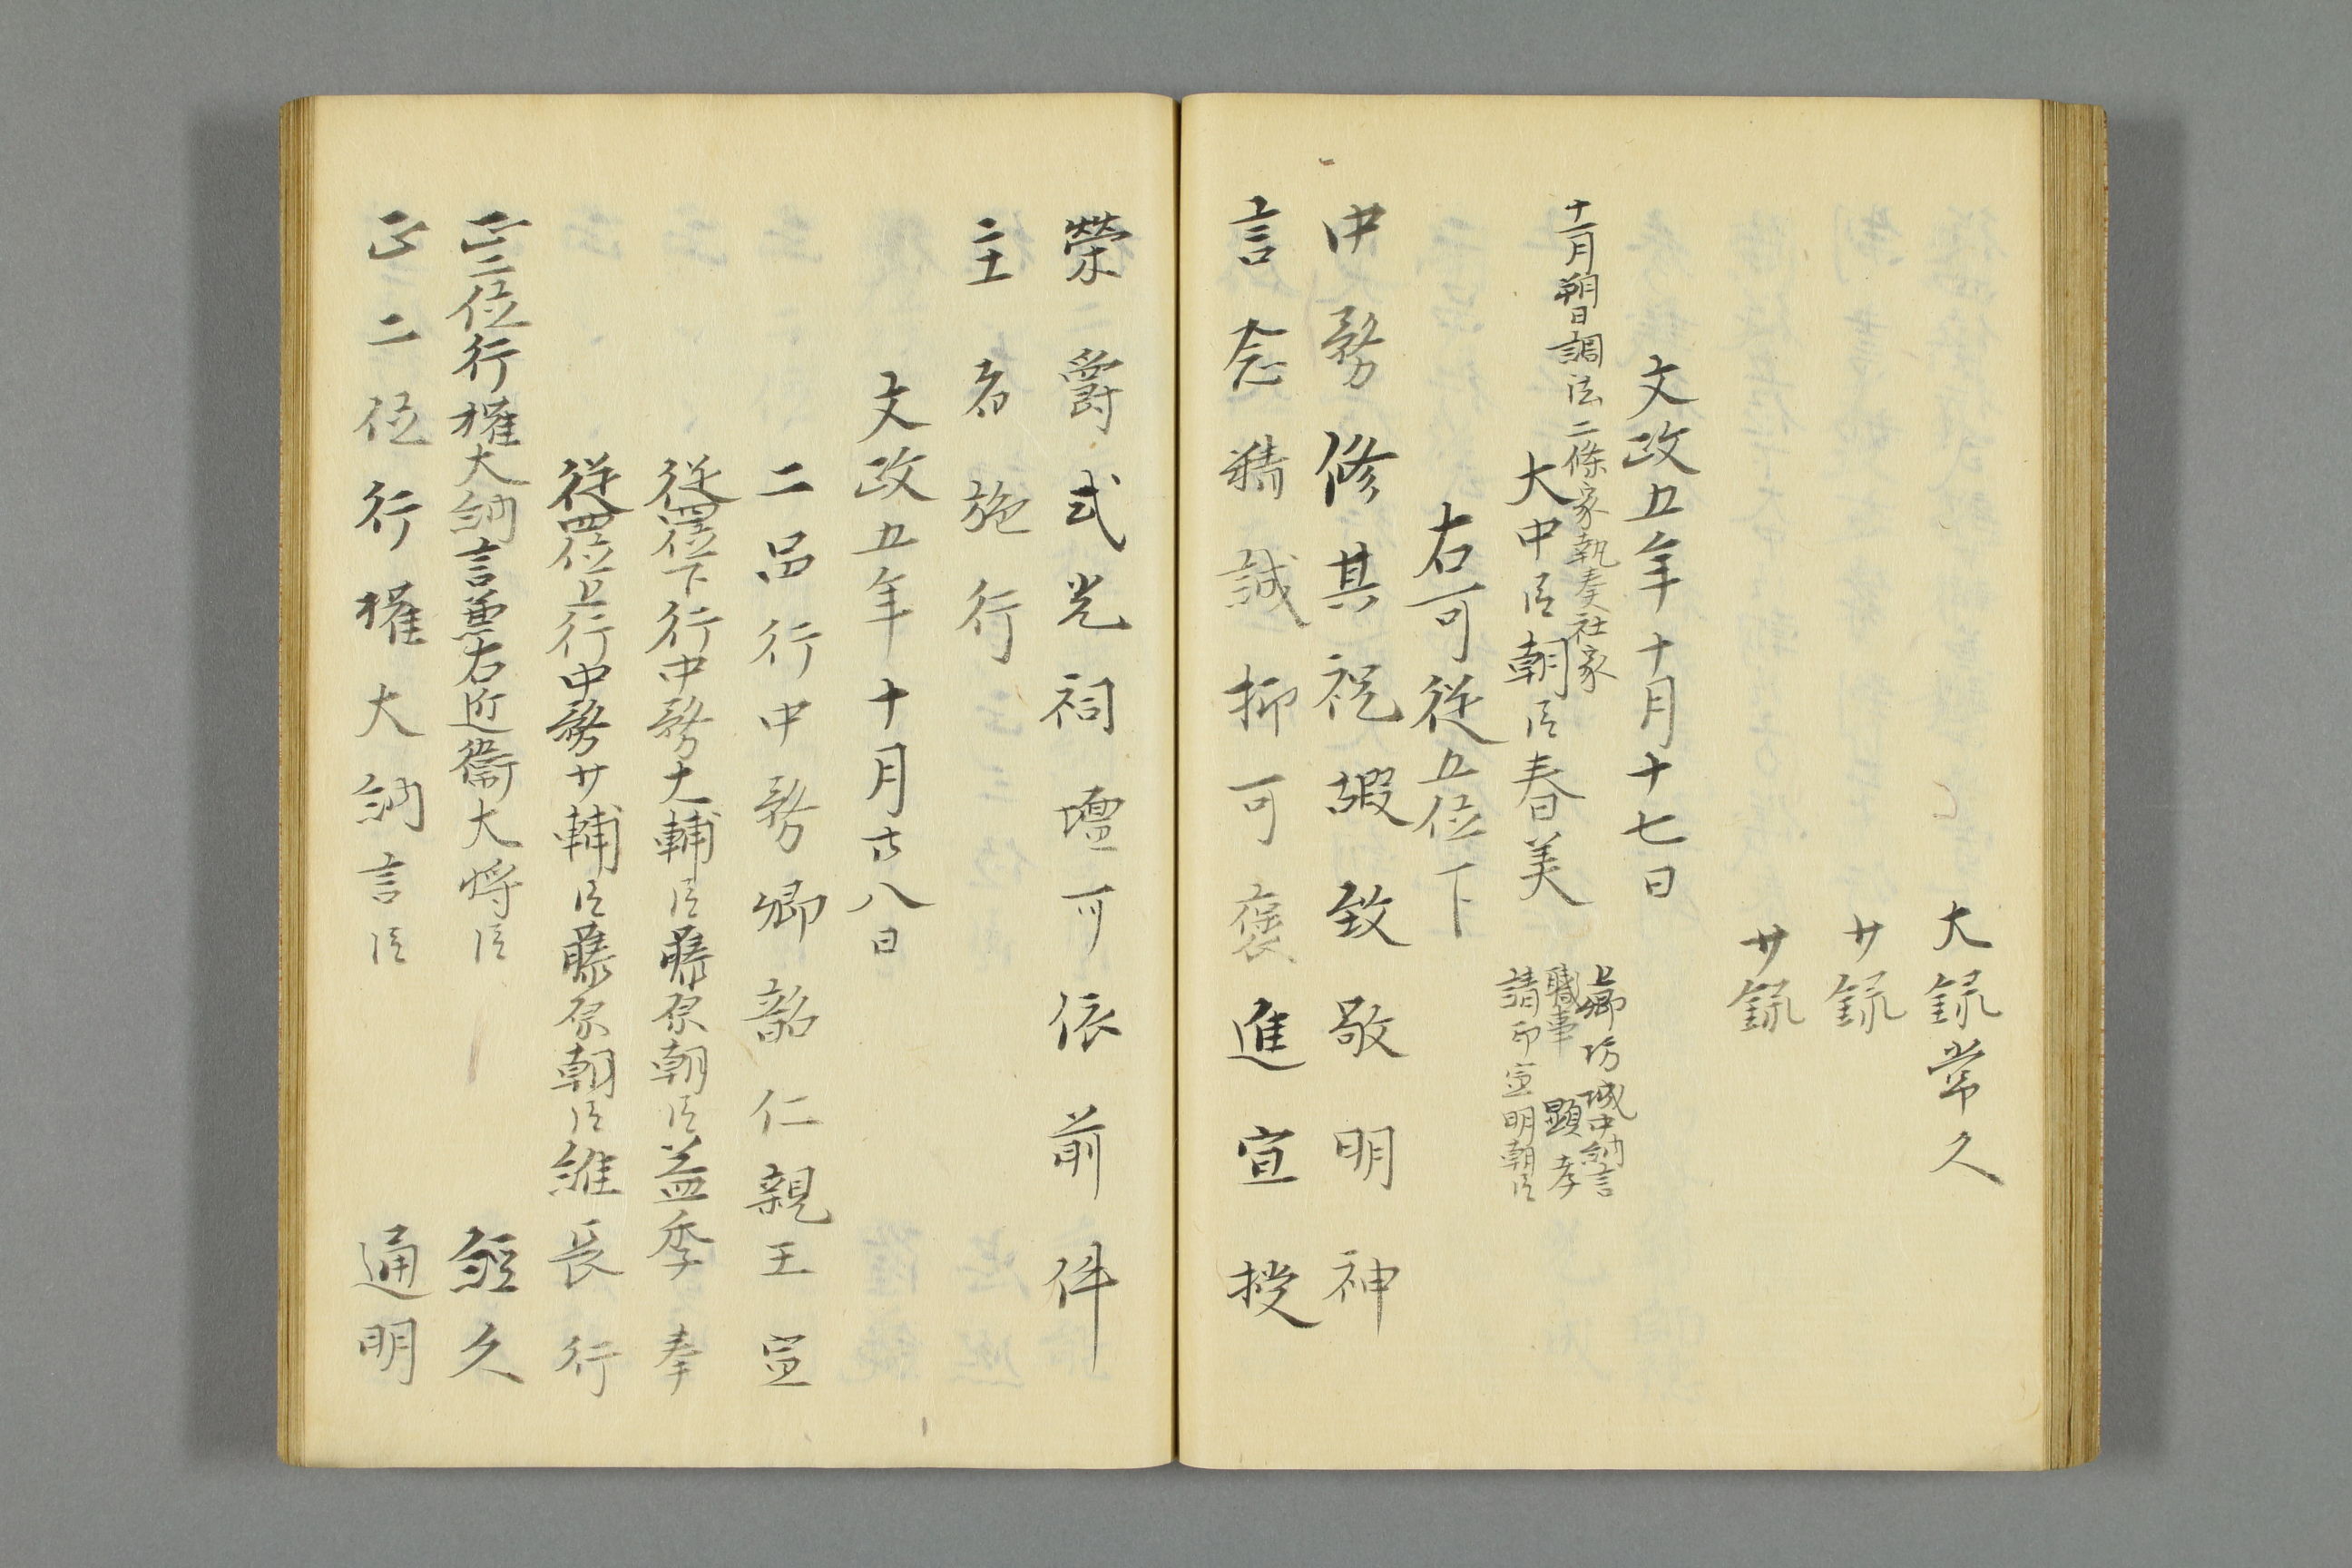 大録常久
少録
少録
文政五年十月十七日
十一月朔日調法二條家執奏社家
大中臣朝臣春美
上卿坊城中納言
職事 顕孝
請印宣明朝臣
右可従五位下
中務修其祝嘏致敬明神
言念精誠抑可褒進宣授
榮爵式光祠壇可依前件
主者施行
文政五年十月廿八日
二品行中務卿韶仁親王宣
従四位下行中務大輔臣藤原朝臣益季奉
従四位上行中務少輔臣藤原朝臣維長行
正二位行権大納言兼右近衛大将臣 経久
正二位行権大納言臣 通明